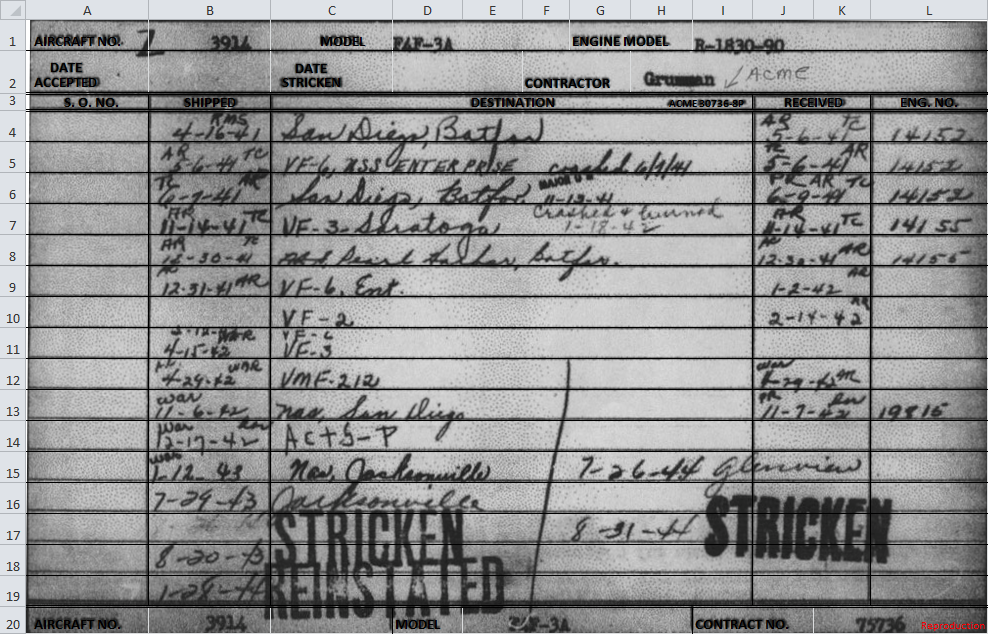 A B C D E F G H I J K L
1 AIRCRAFT NO. 3914 MODEL F4F-3A ENGINE MODEL R-1830-90
2 DATE ACCEPTED DATE STRICKEN CONTRACTOR Grumman ACME
3 S. O. NO. SHIPPED DESTINATION ACME 80736-8P RECEIVED ENG. NO.
RMS AR TC
4 4-16-41 San Diego, Batfor 5-6-41 14152
AR TC TC AR
5 5-6-41 VF-6, USS ENTERPRISE crashed 6/9/41 5-6-41 14152
TC AR MAJOR PR AR TC
6 6-7-41 San Diego, Batfor. 11-13-41 6-9-41 14152
AR Crashed & burned AR
7 11-14-41 TC VF-3-Saratoga 1-18-42 11-14-41 TC 14155
AR TC AR
8 12-30-41 Pearl Harbor, Batfor. 12-30-41 14155
AR AR
9 12-31-41 VF-6, Ent. 1-2-42
AR
10 VF-2 2-14-42
WAR VF-6
11 4-15-42 VF-3
WAR war
12 4-29-42 VMF-212 4-29-42
war PR
13 11-6-42 Nas, San Diego 11-7-42 19815
war
14 12-17-42 ACTG-P
war
15 1-12-43 Nas, Jacksonville 7-26-44 Glenview
16 7-29-43 Jacksonville
17 STRICKEN 8-31-44 STRICKEN
18 8-20-43
19 1-28-44 REINSTATED
20 AIRCRAFT NO. 3914 MODEL F4F-3A CONTRACT NO. 75736 Reproduction